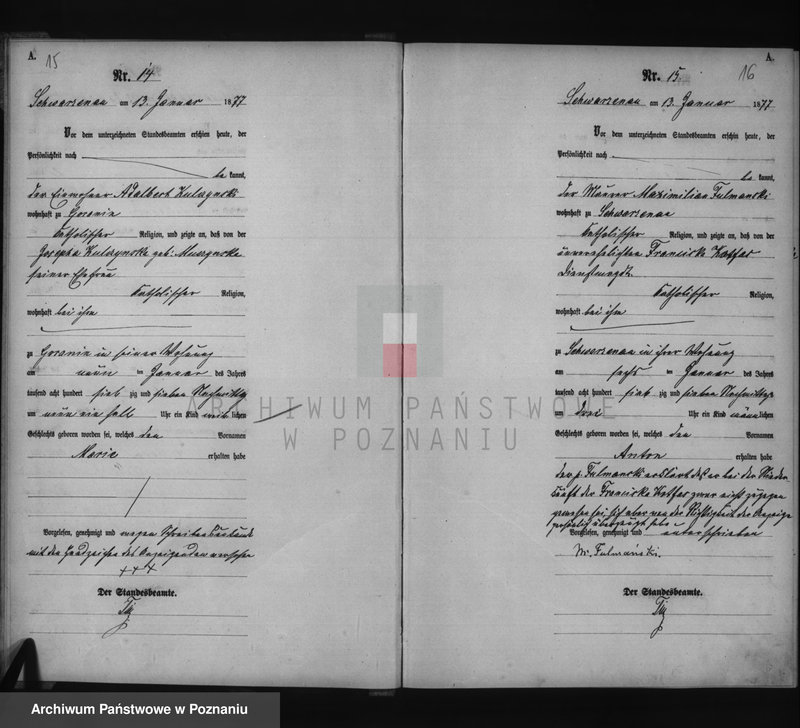 A. 15
Nr. 14
Schwarzenau am 13. Januar 1877
Vor dem unterzeichneten Standesbeamten erschien heute, der
Persönlichkeit nach
be kannt,
der Einwohner Adalbert
wohnhaft zu Goranin
katholischer Religion, und zeigte an, daß von der
Josepha geb.
seiner Ehefrau
katholischer Religion,
wohnhaft bei ihm
zu Goranin in seiner Wohnung
am neun ten Januar des Jahres
tausend acht hundert sieb zig und sieben Nachmittags
um neun ein halb Uhr ein Kind weib lichen
Geschlechts geboren worden sei, welches den Vornamen
Marie erhalten habe
Vorgelesen, genehmigt und wegen
mit dem Handzeichen des Anzeigenden versehen
+++
Der Standesbeamte.
A. 16
Nr. 15.
Schwarzenau am 13. Januar 1877
Vor dem unterzeichneten Standesbeamten erschien heute, der
Persönlichkeit nach
be kannt,
der Maurer Maximilian Fulmanski
wohnhaft zu Schwarzenau
katholischer Religion, und zeigte an, daß von der
unverehelichten Franciska
Dienstmagd
katholischer Religion,
wohnhaft bei ihm
zu Schwarzenau in ihrer Wohnung
am sechs ten Januar des Jahres
tausend acht hundert sieb zig und sieben Nachmittags
um drei Uhr ein Kind männ lichen
Geschlechts geboren worden sei, welches den Vornamen
Anton erhalten habe
der p. Fulmanski erklärt daß er bei der Nieder
kunft der Franciska zwar nicht zugegen
gewesen sei sich aber von der Richtigkeit der Anzeige
persönlich überzeugt habe
Vorgelesen, genehmigt und unterschrieben
M. Fulmański.
Der Standesbeamte.
ARCHIWUM PAŃSTWOWE
W POZNANIU
Archiwum Państwowe w Poznaniu